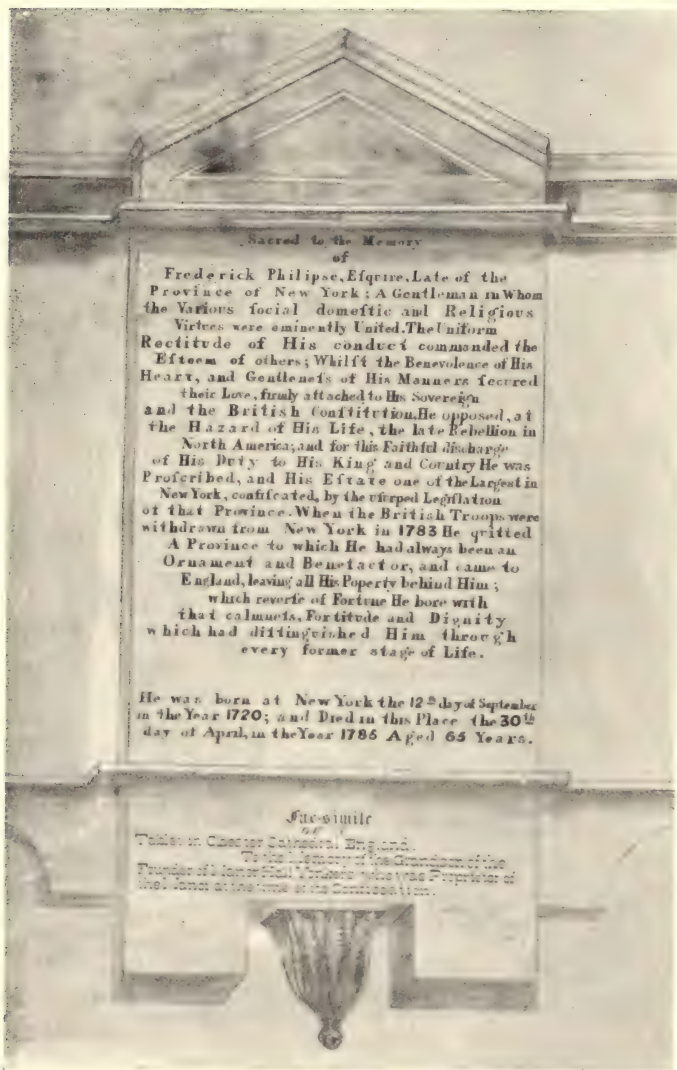 Sacred to the Memory
of
Frederick Philipse, Eſqvire, Late of the
Province of New York; A Gentleman in Whom
the Variovs ſocial domeſtic and Religiovs
Virtves were eminently United. The Uniform
Rectitvde of His conduct commanded the
Eſteem of others; Whilſt the Benevolence of His
Heart, and Gentleneſs of His Manners ſecvred
their Love, firmly attached to His Sovereign
and the British Conſtitvtion, He opposed, at
the Hazard of His Life, the late Rebellion in
North America; and for this Faithfvl diſcharge
of His Dvty to His King and Covntry He was
Proſcribed, and His Eſtate one of the Largest in
New York, confiſcated, by the vſvrped Legiſlation
of that Province. When the British Troops were
withdrawn from New York in 1783 He qvitted
A Province to which He had always been an
Ornament and Benefactor, and came to
England, leaving all His Poperty behind Him;
which reverſe of Fortvne He bore with
that calmneſs, Fortitvde and Dignity
which had diſtingviſhed Him throvgh
every former stage of Life.
He was born at New York the 12th day of September
in the Year 1720; and Died in this Place the 30th
day of April, in the Year 1785 Aged 65 Years.
Fac-simile
OF
Tablet in Chester Cathedral England.
To the Memory of the Grandson of the
Founder of Manor Hall Yonkers who was Proprietor of
the Manor at the time of its Confiscation.